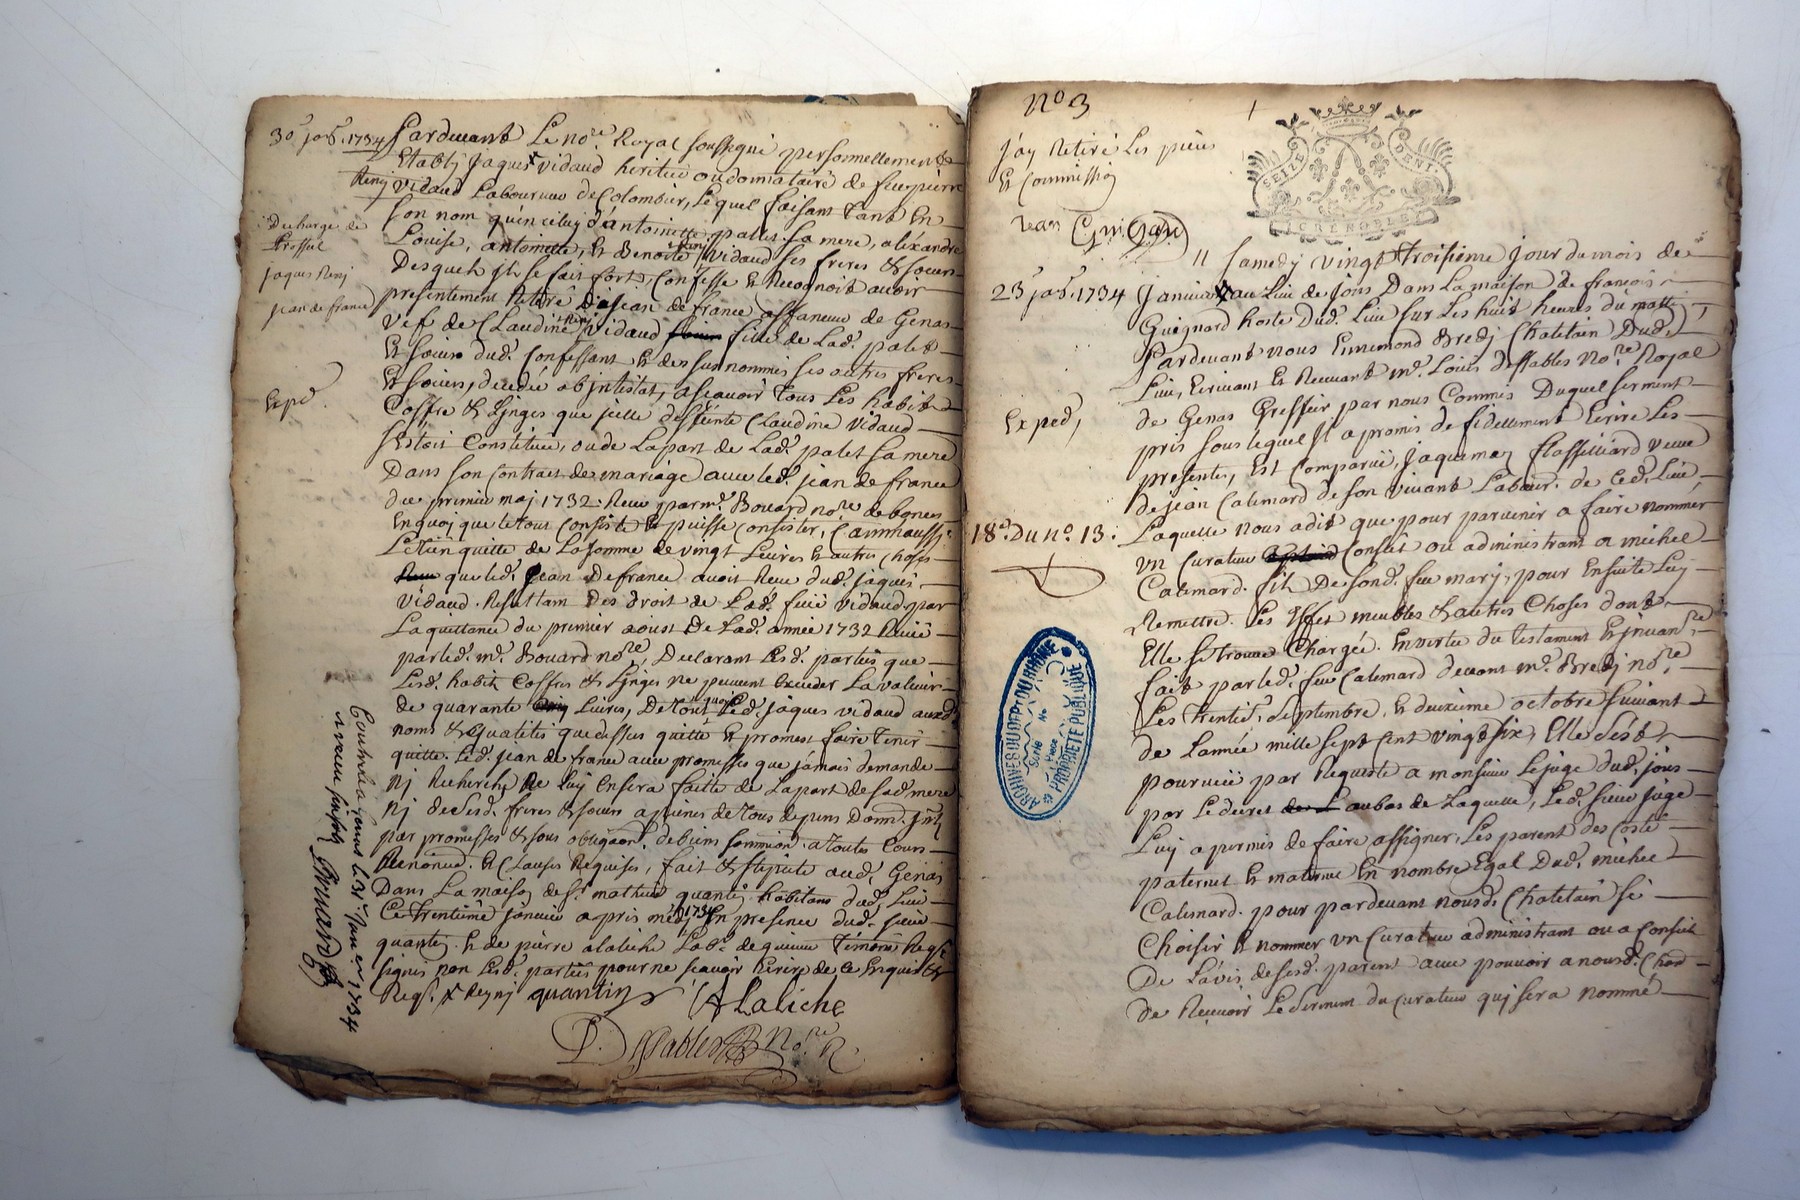 30e janr. 1734 Pardevant Le nore. Royal soussigné personnellement
Etably Jaques vidaud heritier ou donnataire de feu pierre
Reny vidaud Laboureur de Colombier, Lequel faisant tant En
son nom qu'en celuy d'antoinette pallet sa mere, aléxandre
Louise, antoinette, Et Benoite Reny vidaud ses freres & soeurs
Desquels il se fait fort, Confesse & Recognoit avoir
presentement Retiré de Jean de france affaneur de Genas
vef de Claudine Reny vidaud fille de Lade. palet
Et soeur dud. Confessant & des surnommés ses autres freres
Et soeurs, decedée abjntestat, ascavoir Tous Les habits
Coffre & Linges que jcelle deffunte Claudine vidaud
s'estoit Constituée, ou de La part de Lade. palet sa mere
Dans son Contract de mariage avec led. jean de france
du premier maj 1732. Receu par me. Bouard nore de
En quoy que le tout Consiste & puisse Consister, Comm'aussi
Le Tien quitte de La somme de vingt Livres & autres choses
que led. Jean De france avoit Receu dud. jaques
vidaud. Resultant Des droit de Lad. feüe vidaud par
La quittance du premier aoust De Lad. année 1732 Receüe
par led. me. Bouard nore, Declarant Lesd. parties que
Lesd. habits Coffres & Linges ne peuvent Exceder La valeur
de quarante Livres, De Tout quoy Led. jaques vidaud auxd.
noms & qualités que dessus quitte & promet faire Tenir
quitte. Led. Jean de france avec promesses que jamais demande
Nj Recherche Ne luy En sera faitte de La part de sad. mere
Nj de sesd. freres & soeurs a peines de Tous depens Dom. jnt
par promesses & sous obligaon. de biens soumission a Toutes Cours
Renonce. & Clauses Requises, fait & stipulé aud. Genas
Dans La maison de sr. mathieu quantin habitant dud. Lieu
Ce Trentième janvier apris midy 1734 En presence dud. sieur
quantin & de pierre alaliche Labr. de Temoins Reqs.
signes non Lesd. parties pour ne scavoir Ecrire de ce Enquis &
Reqs. x Reynj quantin ALaliche
P. Dessables Nore. R.
Decharge de
Troffeul
jaques Renj
jean de france
Exped.
Controlé a Genas Le 31e. Janer. 1734
Receu six sols
Bouard
No 3
j'ay Retiré Les pieces
& Commission
Guignard
SEIZE DENI.
GRENOBLE
23e janr. 1734
Exped,
18e. Du no. 13.
ARCHIVES DU DEPt DU RHONE
Série
No
Pièce
PROPRIÉTÉ PUBLIQUE
Samedy vingt Troisième Jour du mois de
Janvier au Lieu de Jons Dans La maison de françois
Guignard hoste Dud. Lieu sur Les huit heures du matin
Pardevant nous Ennemond Bredj Chatelain Dud.
Lieu, Ecrivant & Recevant me. Louis dessables Nore Royal
de Genas Greffier par nous Commis Duquel serment
pris sous lequel Il a promis de fidellement Ecrire Les
presentes, Est Comparuë, Jaquemaz Flassilliard veuve
de jean Calemard de son vivant Labour. de Ced. Lieu,
Laquelle nous a dit que pour parvenir a faire nommer
un Curateur Conseil ou administrant a michel
Calemard. fils De sond. feu mary, pour Ensuite Luy
Remettre. Les Effets meubles & autres Choses dont
Elle se trouve Chargée. En vertu du Testament & jnvanre
fait par led. feu Calemard devant me. Bredj nore
Les Trentie. septembre. & deuxième octobre suivant
de L'année mille sept Cent vingt six, Elle s'est
pourveüe par Requeste a monsieur Le juge dud. jons
par Le decret au bas de Laquelle, Led. sieur juge
Luy a permis de faire assigner, Les parent des Costé
paternel & maternel En nombre Egal Dud. michel
Calemard. pour pardevant nousd. Chatelain se
Choisir & nommer un Curateur administrant ou a Conseil
De L'avis de sesd. parens avec pouvoir a nousd. Chat
de Recevoir Le serment du Curateur qui sera nommé